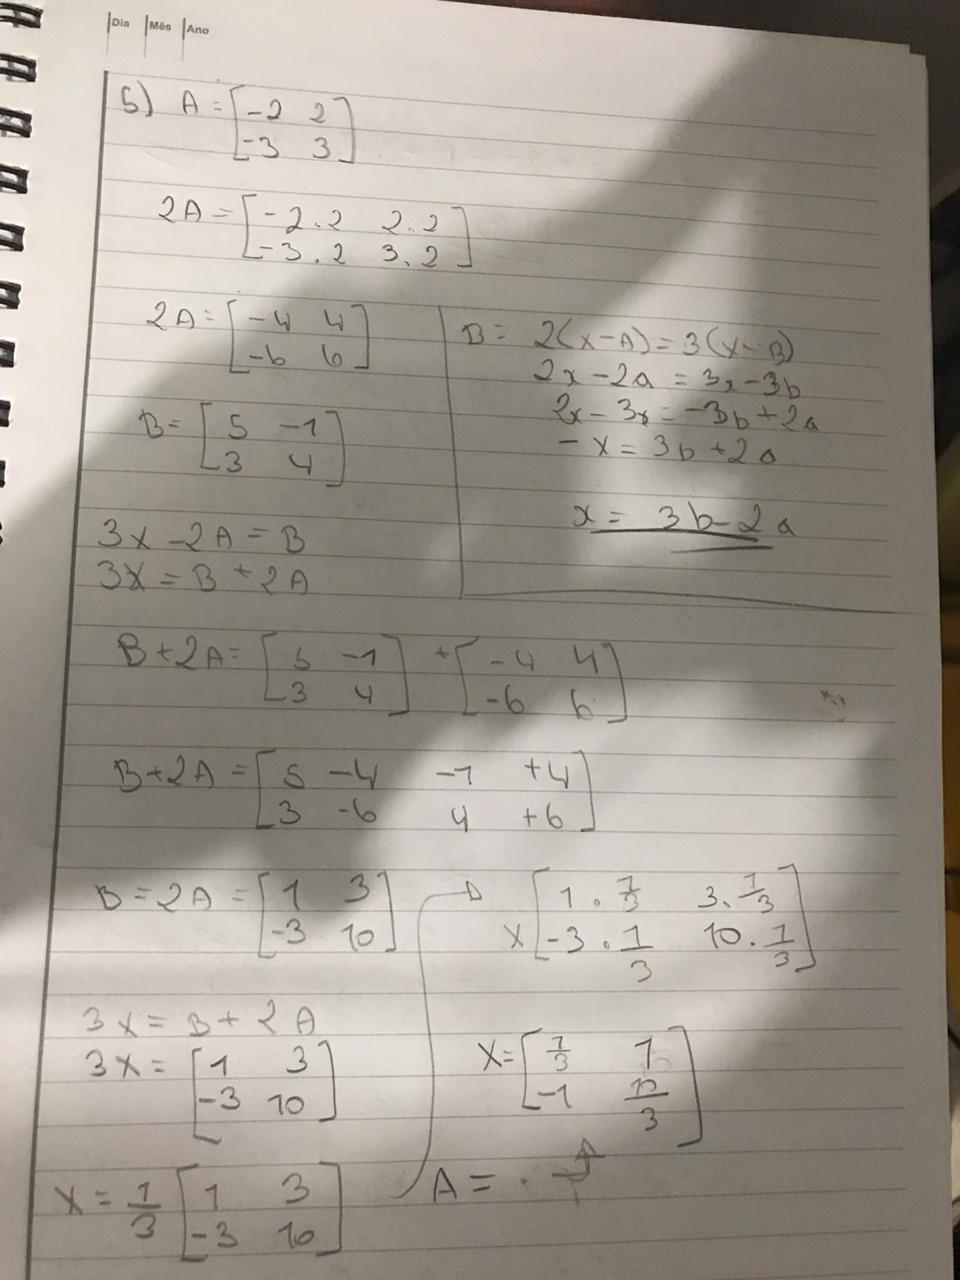 Dia Mês Ano
5) A = [-2 2
-3 3]
2A = [-2.2 2.2
-3.2 3.2]
2A = [-4 4
-6 6]
B = [5 -1
3 4]
3x - 2A = B
3x = B + 2A
B = 2(x-A) = 3(x-B)
2x - 2a = 3x - 3b
2x - 3x = -3b + 2a
- x = 3b + 2a
x = 3b - 2a
B + 2A = [5 -1 + [-4 4
3 4] -6 6]
B + 2A = [5 -4 -1 +4
3 -6 4 +6]
B = 2A = [1 3
-3 10]
3x = B + 2A
3x = [1 3
-3 10]
x = 1/3 [1 3
-3 10]
x [1 . 1/3 3. 1/3
-3 . 1/3 10 . 1/3]
x = [1/3 1
-1 10/3]
A =